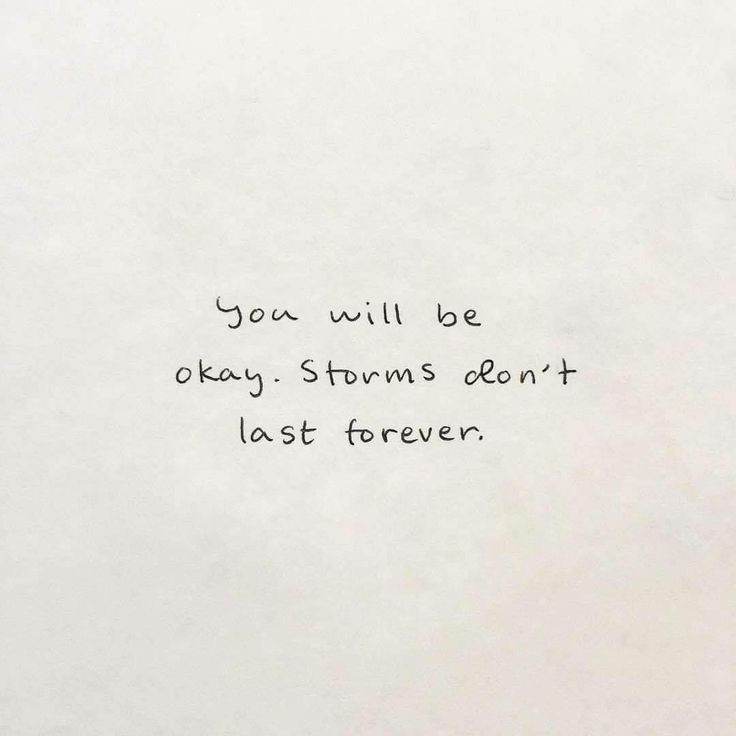 You will be
okay. Storms don't
last forever.